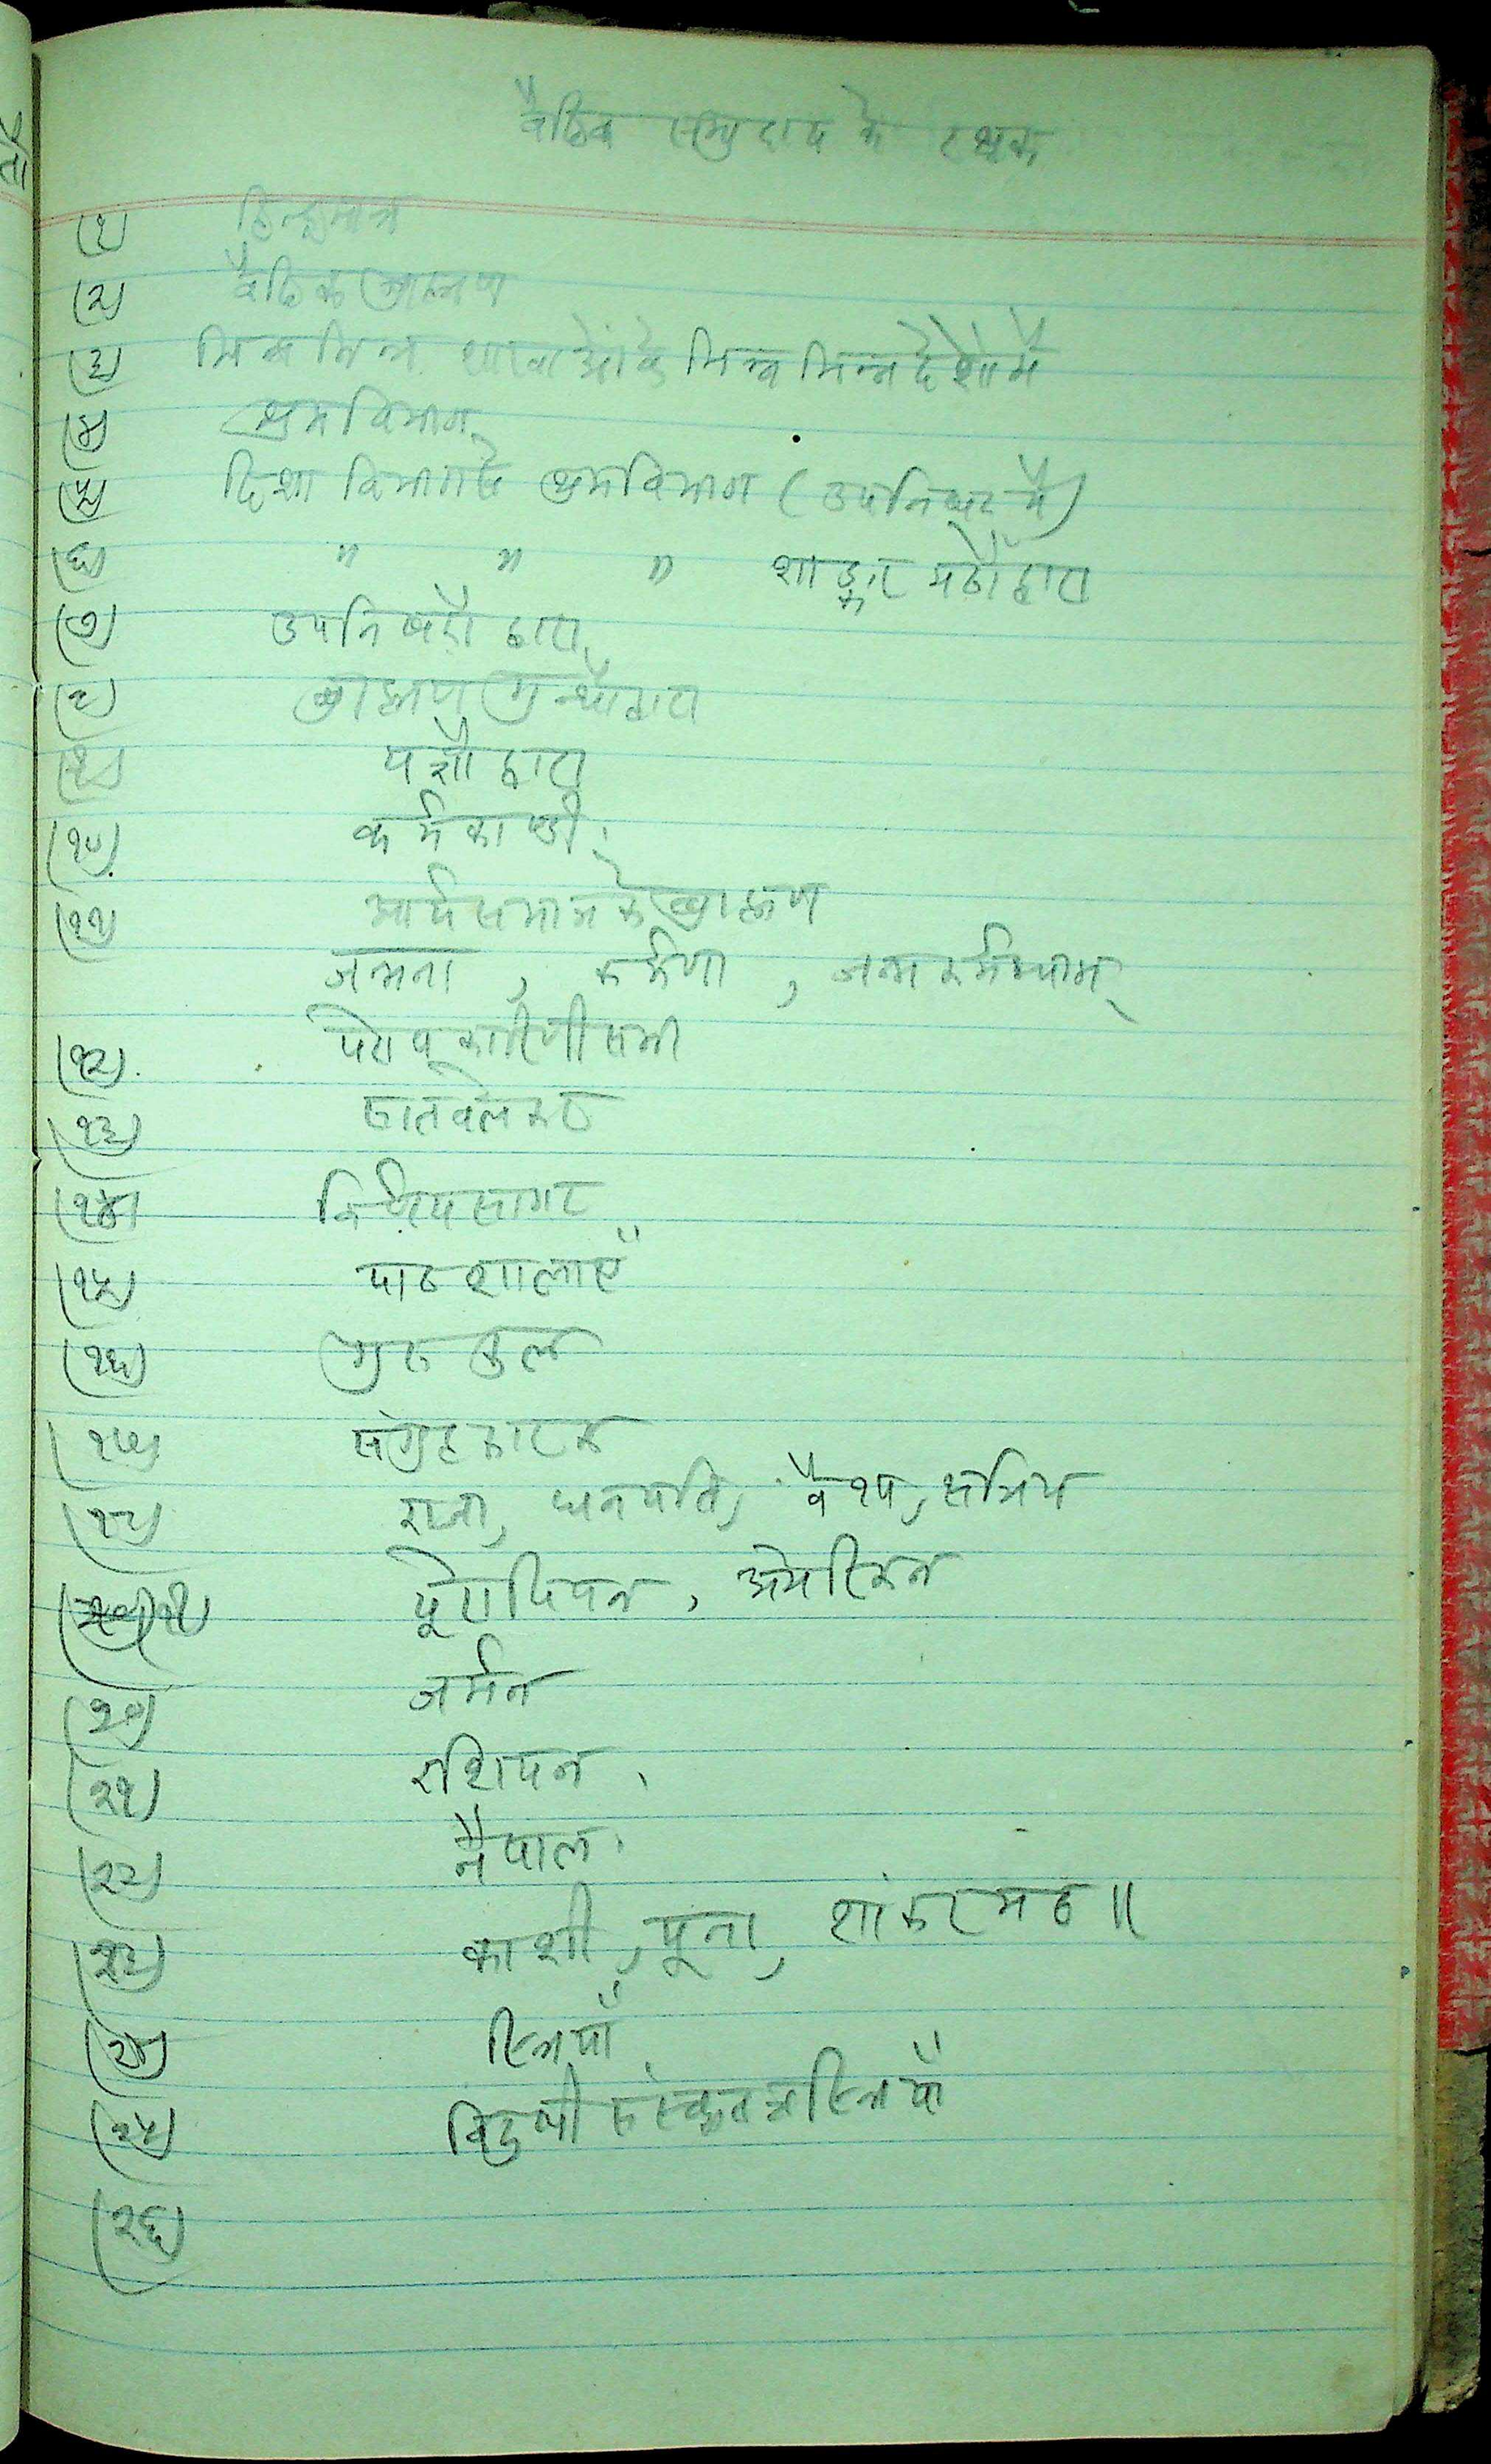 वैदिक समुदाय के रक्षक
(१) हिन्दुमात्र
(२) वैदिक ब्राह्मण
(३) भिन्न भिन्न शाखाओंके भिन्न भिन्न देशोंमें
(४) श्रमविभाग
(५) दिशा विभागसे श्रमविभाग (उपनिषद में)
(६) " " " शाङ्कर मठोंद्वारा
(७) उपनिषदों द्वारा
(८) ब्राह्मण ग्रन्थोंद्वारा
(९) यज्ञों द्वारा
(१०) कर्मकाण्डी
(११) आर्यसमाजके ब्राह्मण
जन्मना, कर्मणा, जन्मकर्मभ्याम्
(१२) परोपकारिणी सभा
(१३) सातवलेकर
(१४) निर्णयसागर
(१५) पाठशालाएँ
(१६) गुरुकुल
(१७) संग्रहकारक
(१८) राजा, धनपति, वैश्य, क्षत्रिय
यूरोपियन, अमेरिकन
(२०) जर्मन
(२१) रशियन
(२२) नैपाल
(२३) काशी, पूना, शांकरमठ ||
(२४) स्त्रियाँ
(२५) विदुषी संस्कृतज्ञ स्त्रियाँ
(२६)